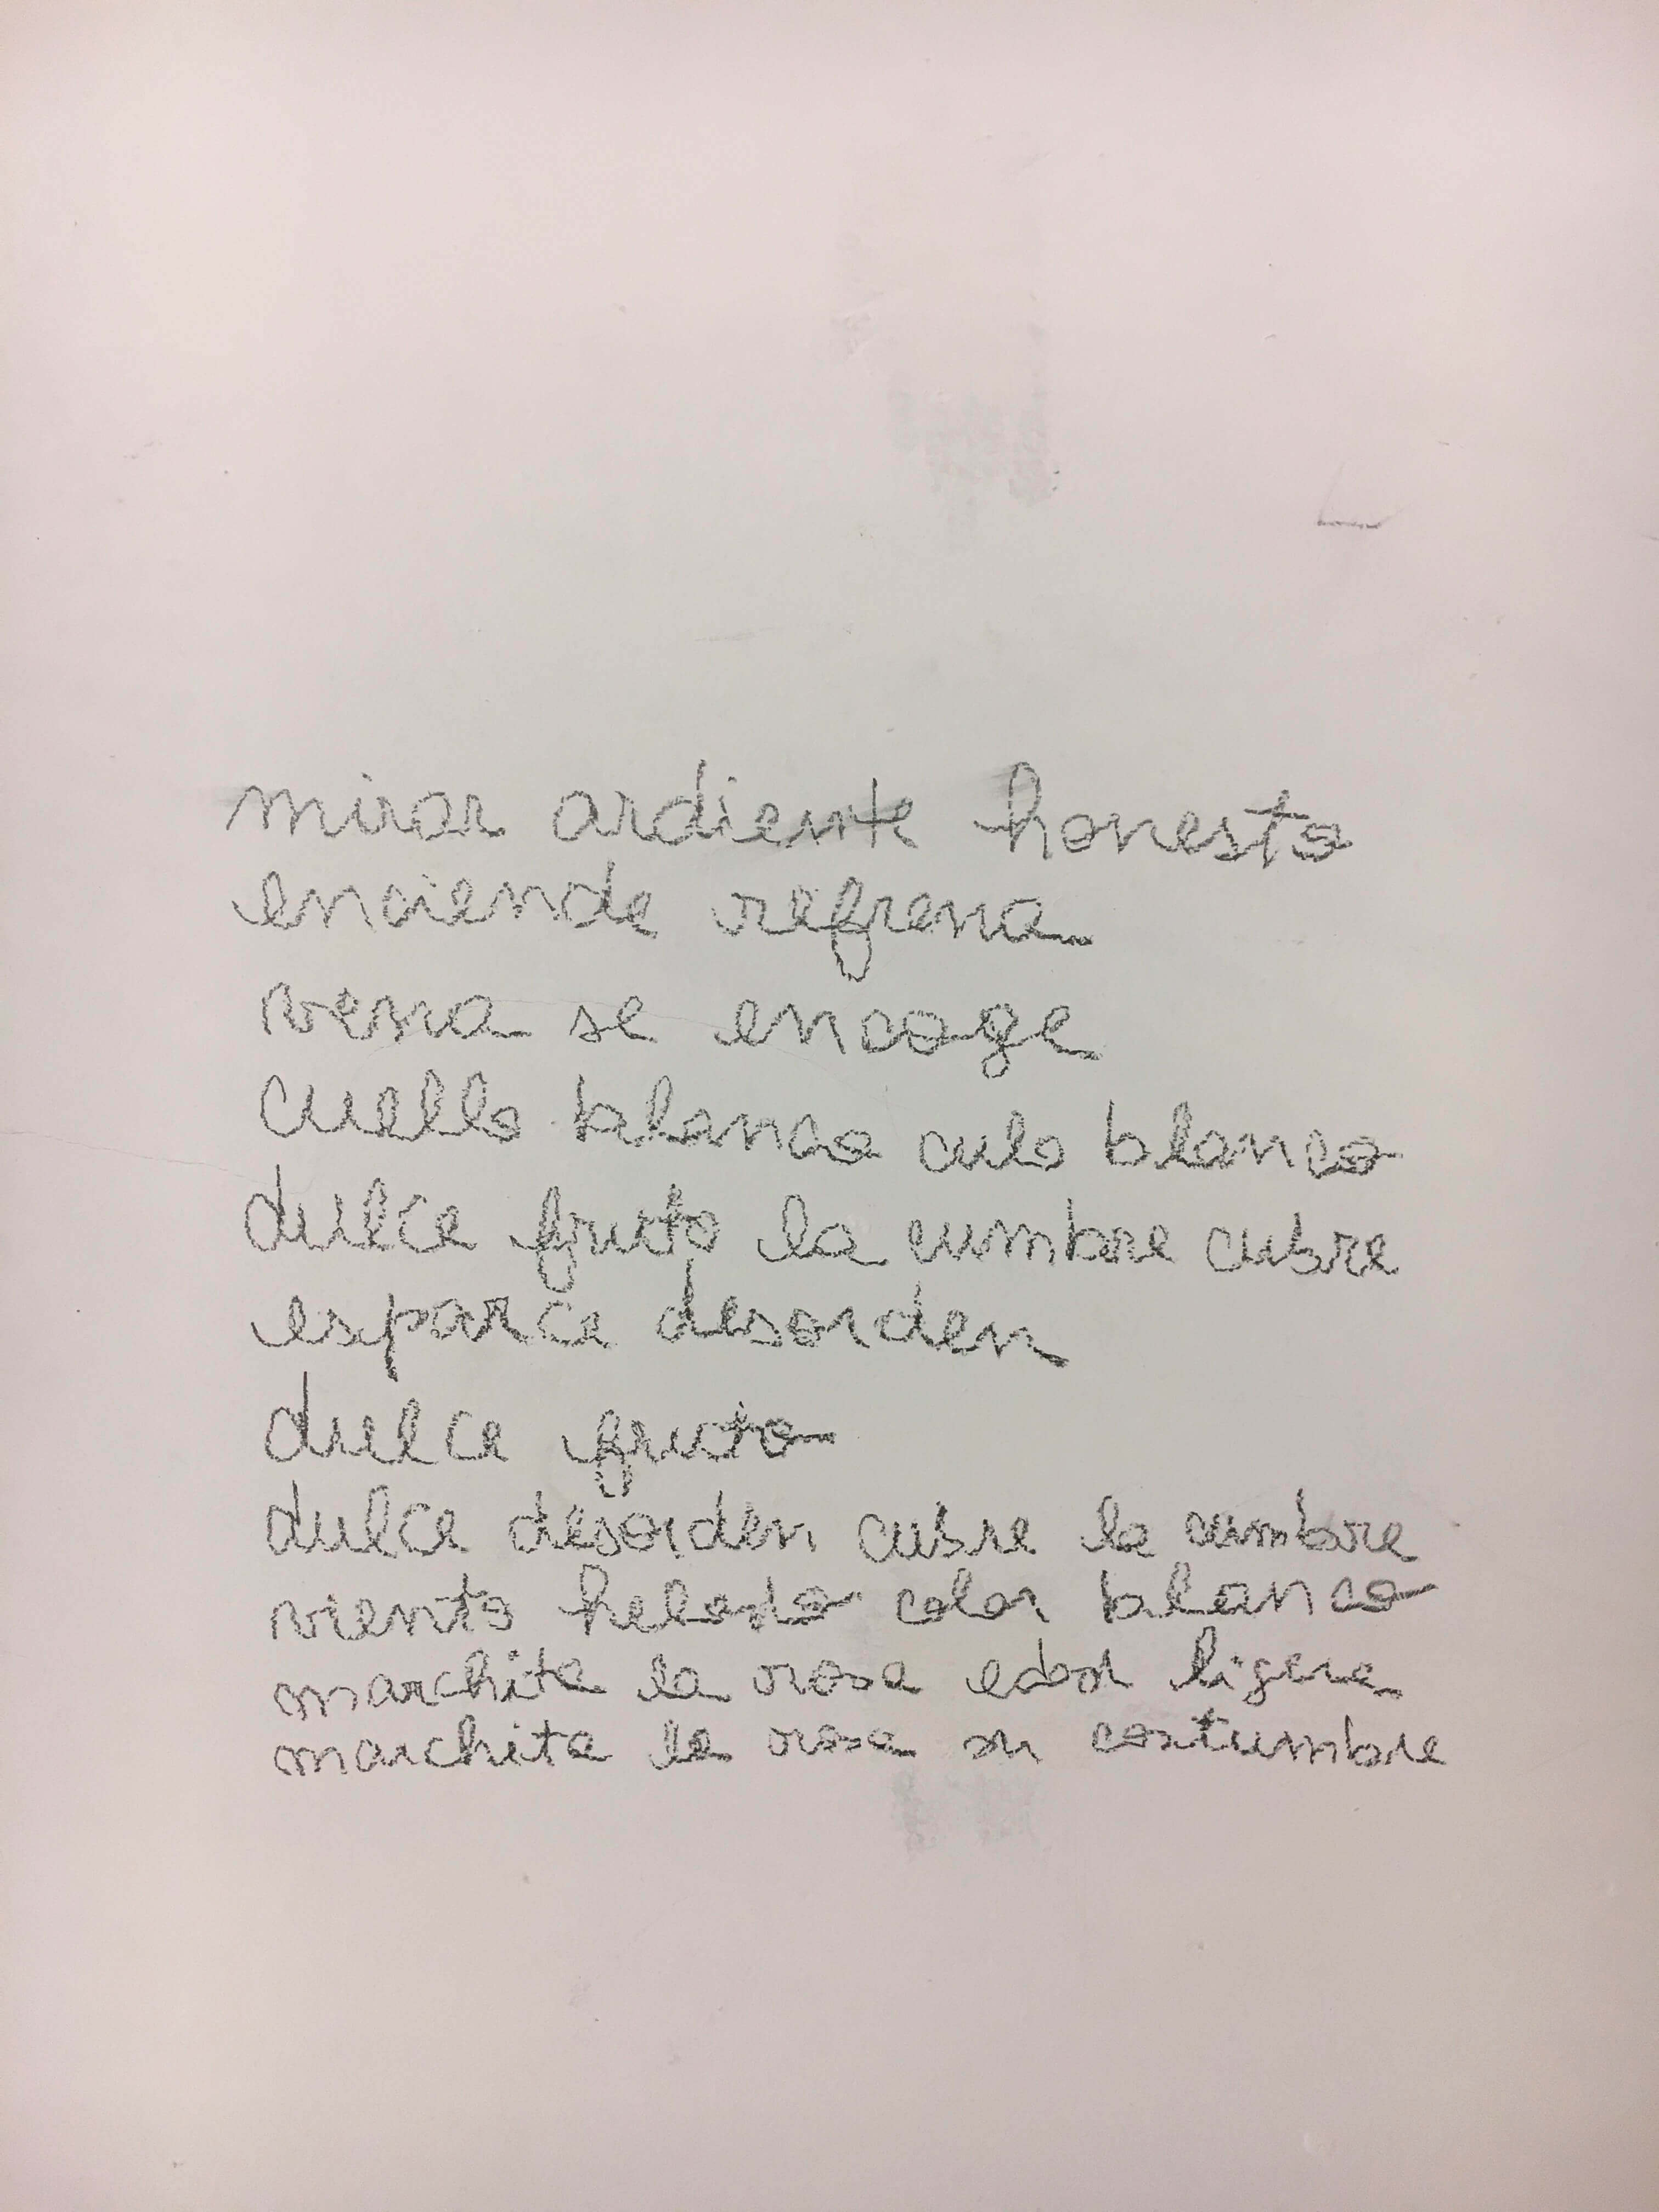 mirar ardiente honesto
enciende refrena
vena se encoge
cuello blanco culo blanco
dulce fruto la cumbre cubre
esparce desorden
dulce fruto
dulce desorden cubre la cumbre
viento helado color blanco
marchita la rosa edad ligera
marchita la rosa su costumbre